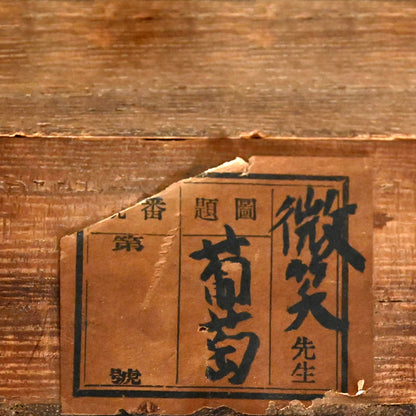 微笑先生
圖題
葡萄
番
第
號